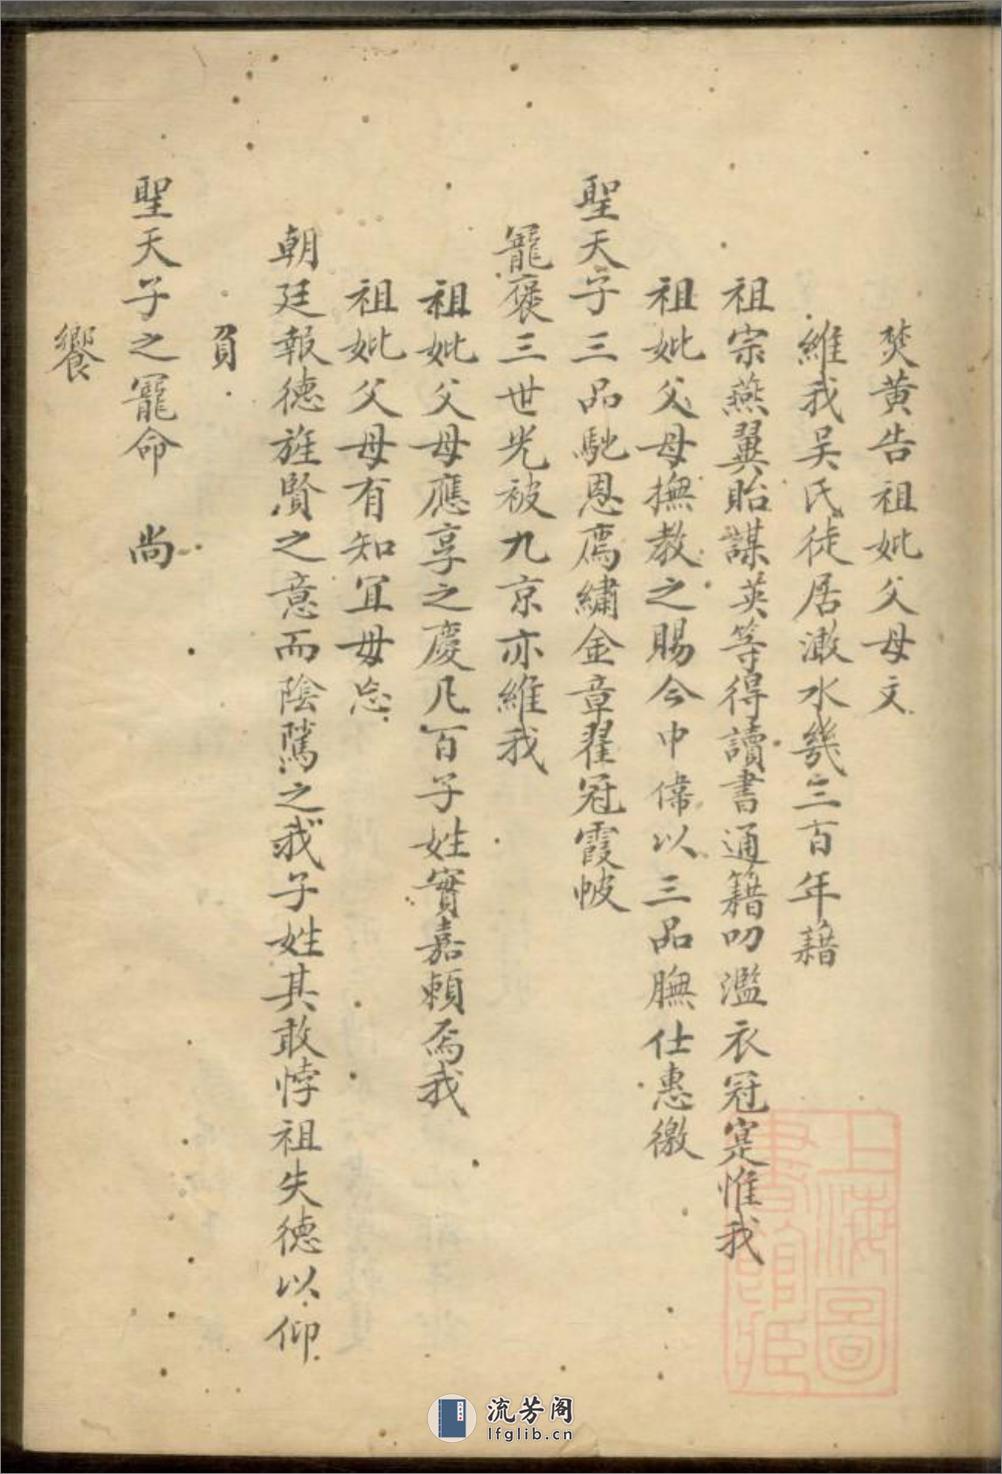 焚黃告祖妣父母文
維我吳氏徙居澉水幾三百年藉
祖宗燕翼貽謀英等得讀書通籍叨濫衣冠寔惟我
祖妣父母撫教之賜今中偉以三品膴仕惠徼
聖天子三品馳恩廌繡金章翟冠霞帔
寵褒三世光被九京亦維我
祖妣父母應享之慶凡百子姓實嘉賴焉我
祖妣父母有知宜毋忘
朝廷報德旌賢之意而陰隲之我子姓其敢悖祖失德以仰
負
聖天子之寵命　尚
饗
上海圖書館藏
流芳阁
lfglib.cn